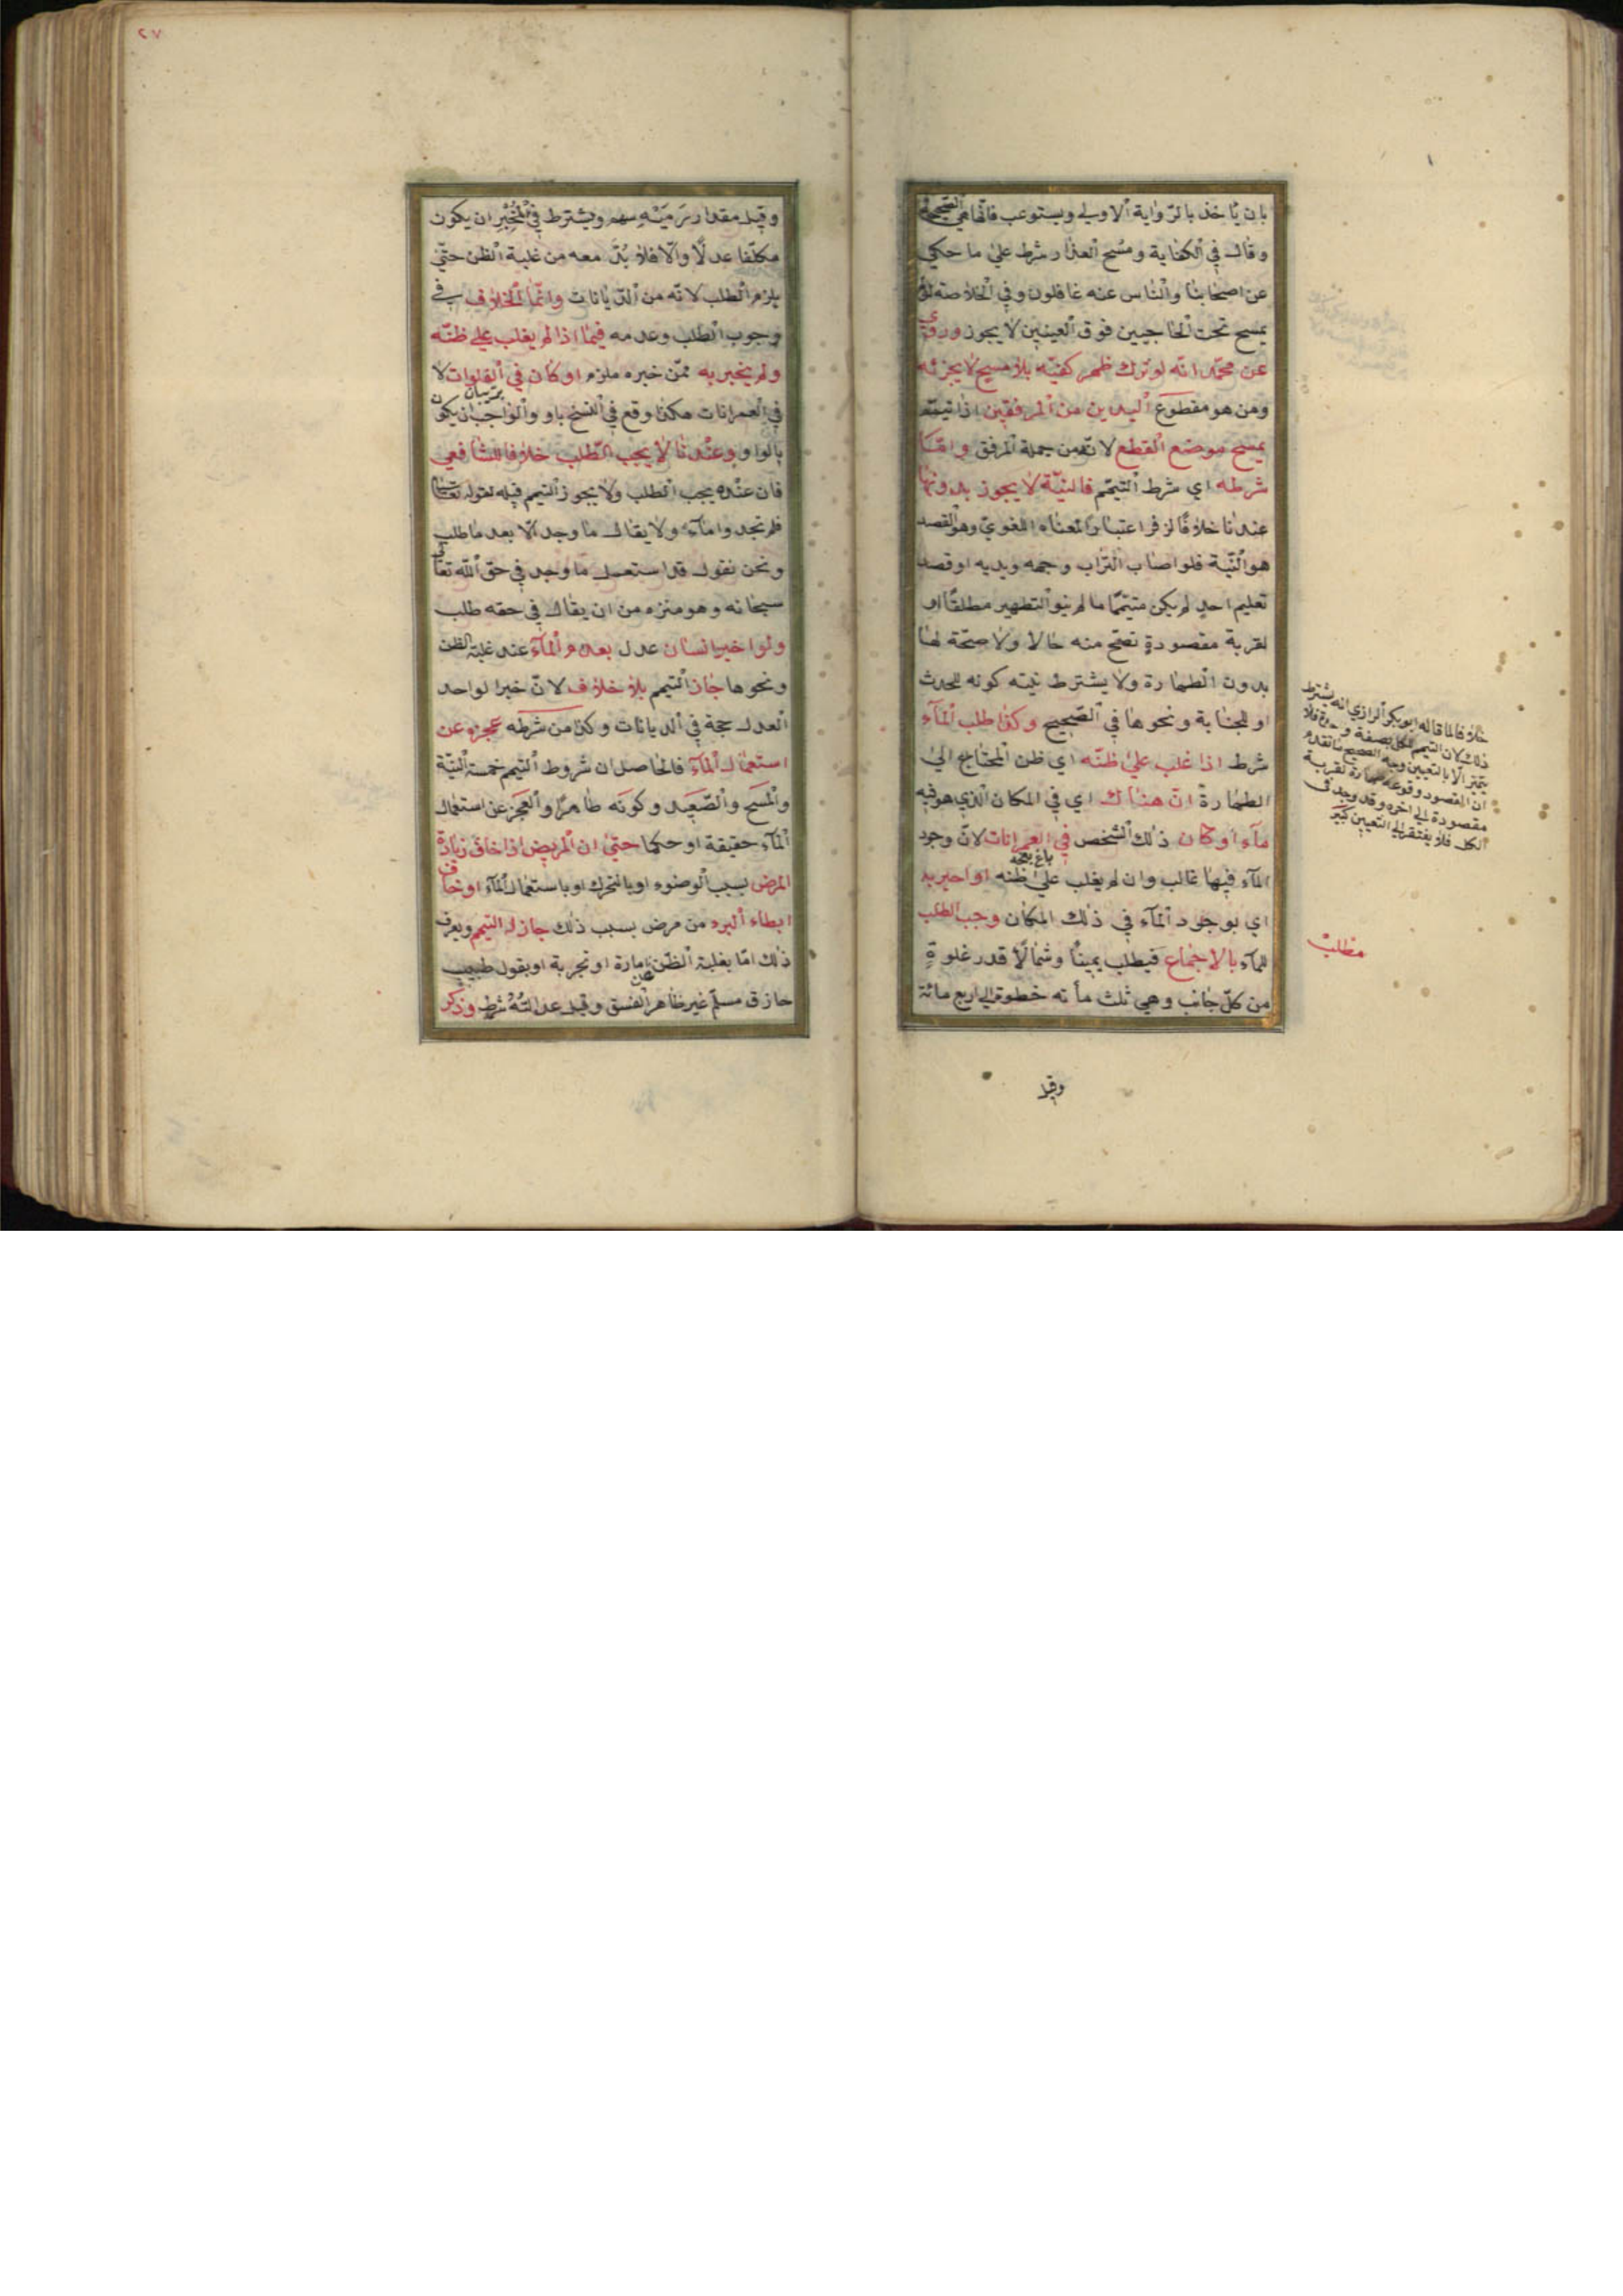 بان يأخذ بالرواية الاولى ويستوعب فانها هي الصحيحة
وقال في الكفاية ومسح العذار شرط على ما حكي
عن اصحابنا والناس عنه غافلون وفي الخلاصة
يمسح تحت الحاجبين فوق العينين لا يجوز وروي
عن محمد انه لو ترك ظهر كفيه بلا مسح لا يجزئه
ومن هو مقطوع اليدين من المرفقين اذا تيمم
يمسح موضع القطع لانه من جملة المرفق واما
شرطه اي شرط التيمم فالنية لا يجوز بدونها
عندنا خلافا لزفر اعتبارا لمعناه اللغوي وهو القصد
هو النية فلو اصاب التراب وجهه ويديه او قصد
تعليم احد لم يكن متيمما ما لم ينو التطهير مطلقا او
لقربة مقصودة تصح منه حالا ولا صحة لها
بدون الطهارة ولا يشترط نيته كونه للحدث
او للجنابة ونحوها في الصحيح وكذا طلب المآء
شرط اذا غلب على ظنه اي ظن المحتاج الى
الطهارة ان هناك اي في المكان الذي هو فيه
مآء او كان ذلك الشخص في العمرانات لان وجود
المآء فيها غالب وان لم يغلب على ظنه او اخبر به
اي بوجود المآء في ذلك المكان وجب الطلب
للمآء بالاجماع فيطلب يمينا وشمالا قدر غلوة
من كل جانب وهي ثلث مأته خطوة الى اربع مائة
وقيل
خلافا لما قاله ابو بكر الرازي انه يشترط
ذلك لان التيمم لكل بصفة و
يتميز الا بالتعيين وجه الصحيح ما تقدم
ان المقصود وقوعه طهارة لقربة
مقصودة الى اخره وقد وجد في
الكل فلا يفتقر الى التعيين كبير
مطلب
٢٧
وقيل مقدار رمية سهم ويشترط في المخبر ان يكون
مكلفا عدلا والا فلا بد معه من غلبة الظن حتى
يلزم الطلب لانه من الديانات وانما الخلاف في
وجوب الطلب وعدمه فيما اذا لم يغلب على ظنه
ولم يخبر به ممن خبره ملزم او كان في الفلوات لا
في العمرانات هكذا وقع في النسخ باو والواجب ان يكون
بالواو وعندنا لا يجب الطلب خلافا للشافعي
فان عنده يجب الطلب ولا يجوز التيمم قبله لقوله تعالى
فلم تجدوا مآء ولا يقال ما وجد الا بعد ما طلب
ونحن نقول قد استعمل ما وجد في حق الله تعالى
سبحانه وهو منزه من ان يقال في حقه طلب
ولو اخبر انسان عدل بعدم المآء عند غلبة الظن
ونحوها جاز التيمم بلا خلاف لان خبر الواحد
العدل حجة في الديانات وكذا من شرطه عجزه عن
استعمال المآء فالحاصل ان شروط التيمم خمسة النية
والمسح والصعيد وكونه طاهرا والعجز عن استعمال
المآء حقيقة او حكما حتى ان المريض اذا خاف زيادة
المرض بسبب الوضوء او بالتحرك او باستعمال المآء او خاف
ابطاء البرء من مرض بسبب ذلك جاز له التيمم ويعرف
ذلك اما بغلبة الظن عن امارة او تجربة او بقول طبيب
حازق مسلم غير ظاهر الفسق وقيل عدالته شرط وذكر